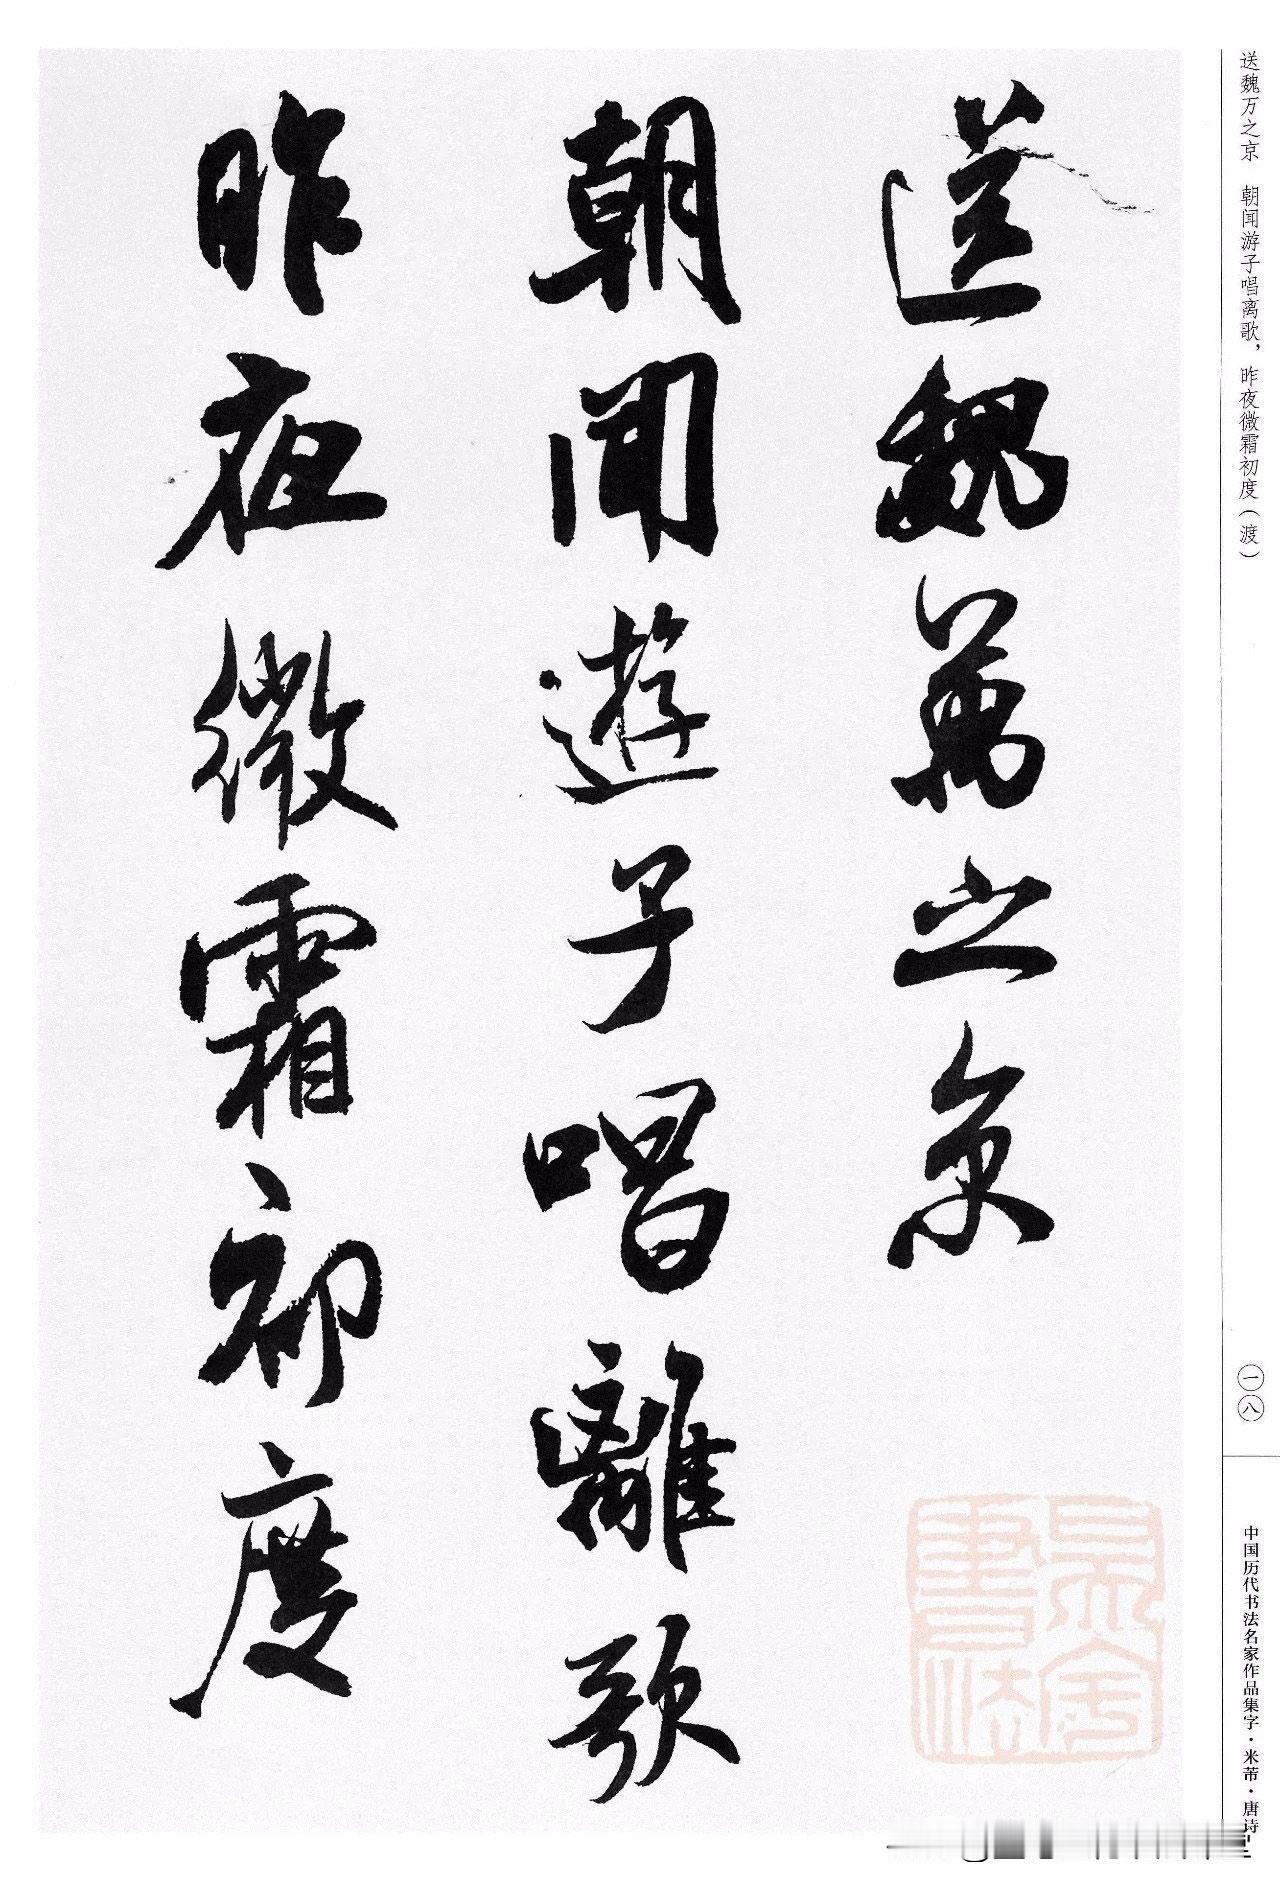 送魏萬之京
朝聞遊子唱離歌
昨夜微霜初度
送魏万之京　朝闻游子唱离歌，昨夜微霜初度（渡）
一八
中国历代书法名家作品集字·米芾·唐诗